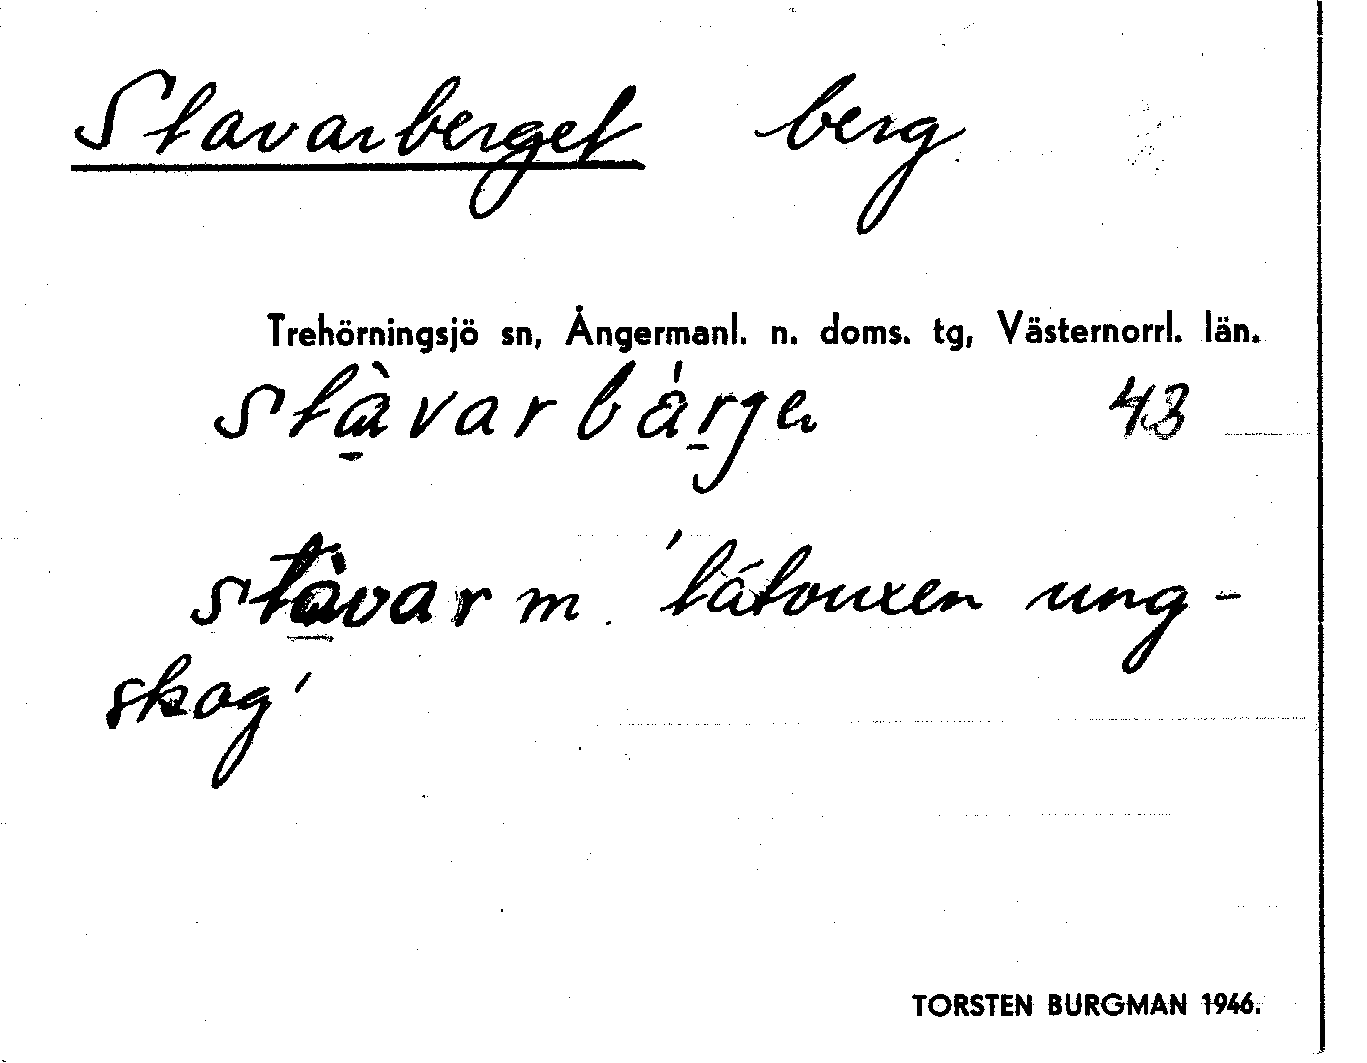 Stavarberget berg
Trehörningsjö sn, Ångermanl. n. doms. tg, Västernorrl. län.
stàvarbárjen 43
stàvar m. 'tätvuxen ung-
skog'
TORSTEN BURGMAN 1946.